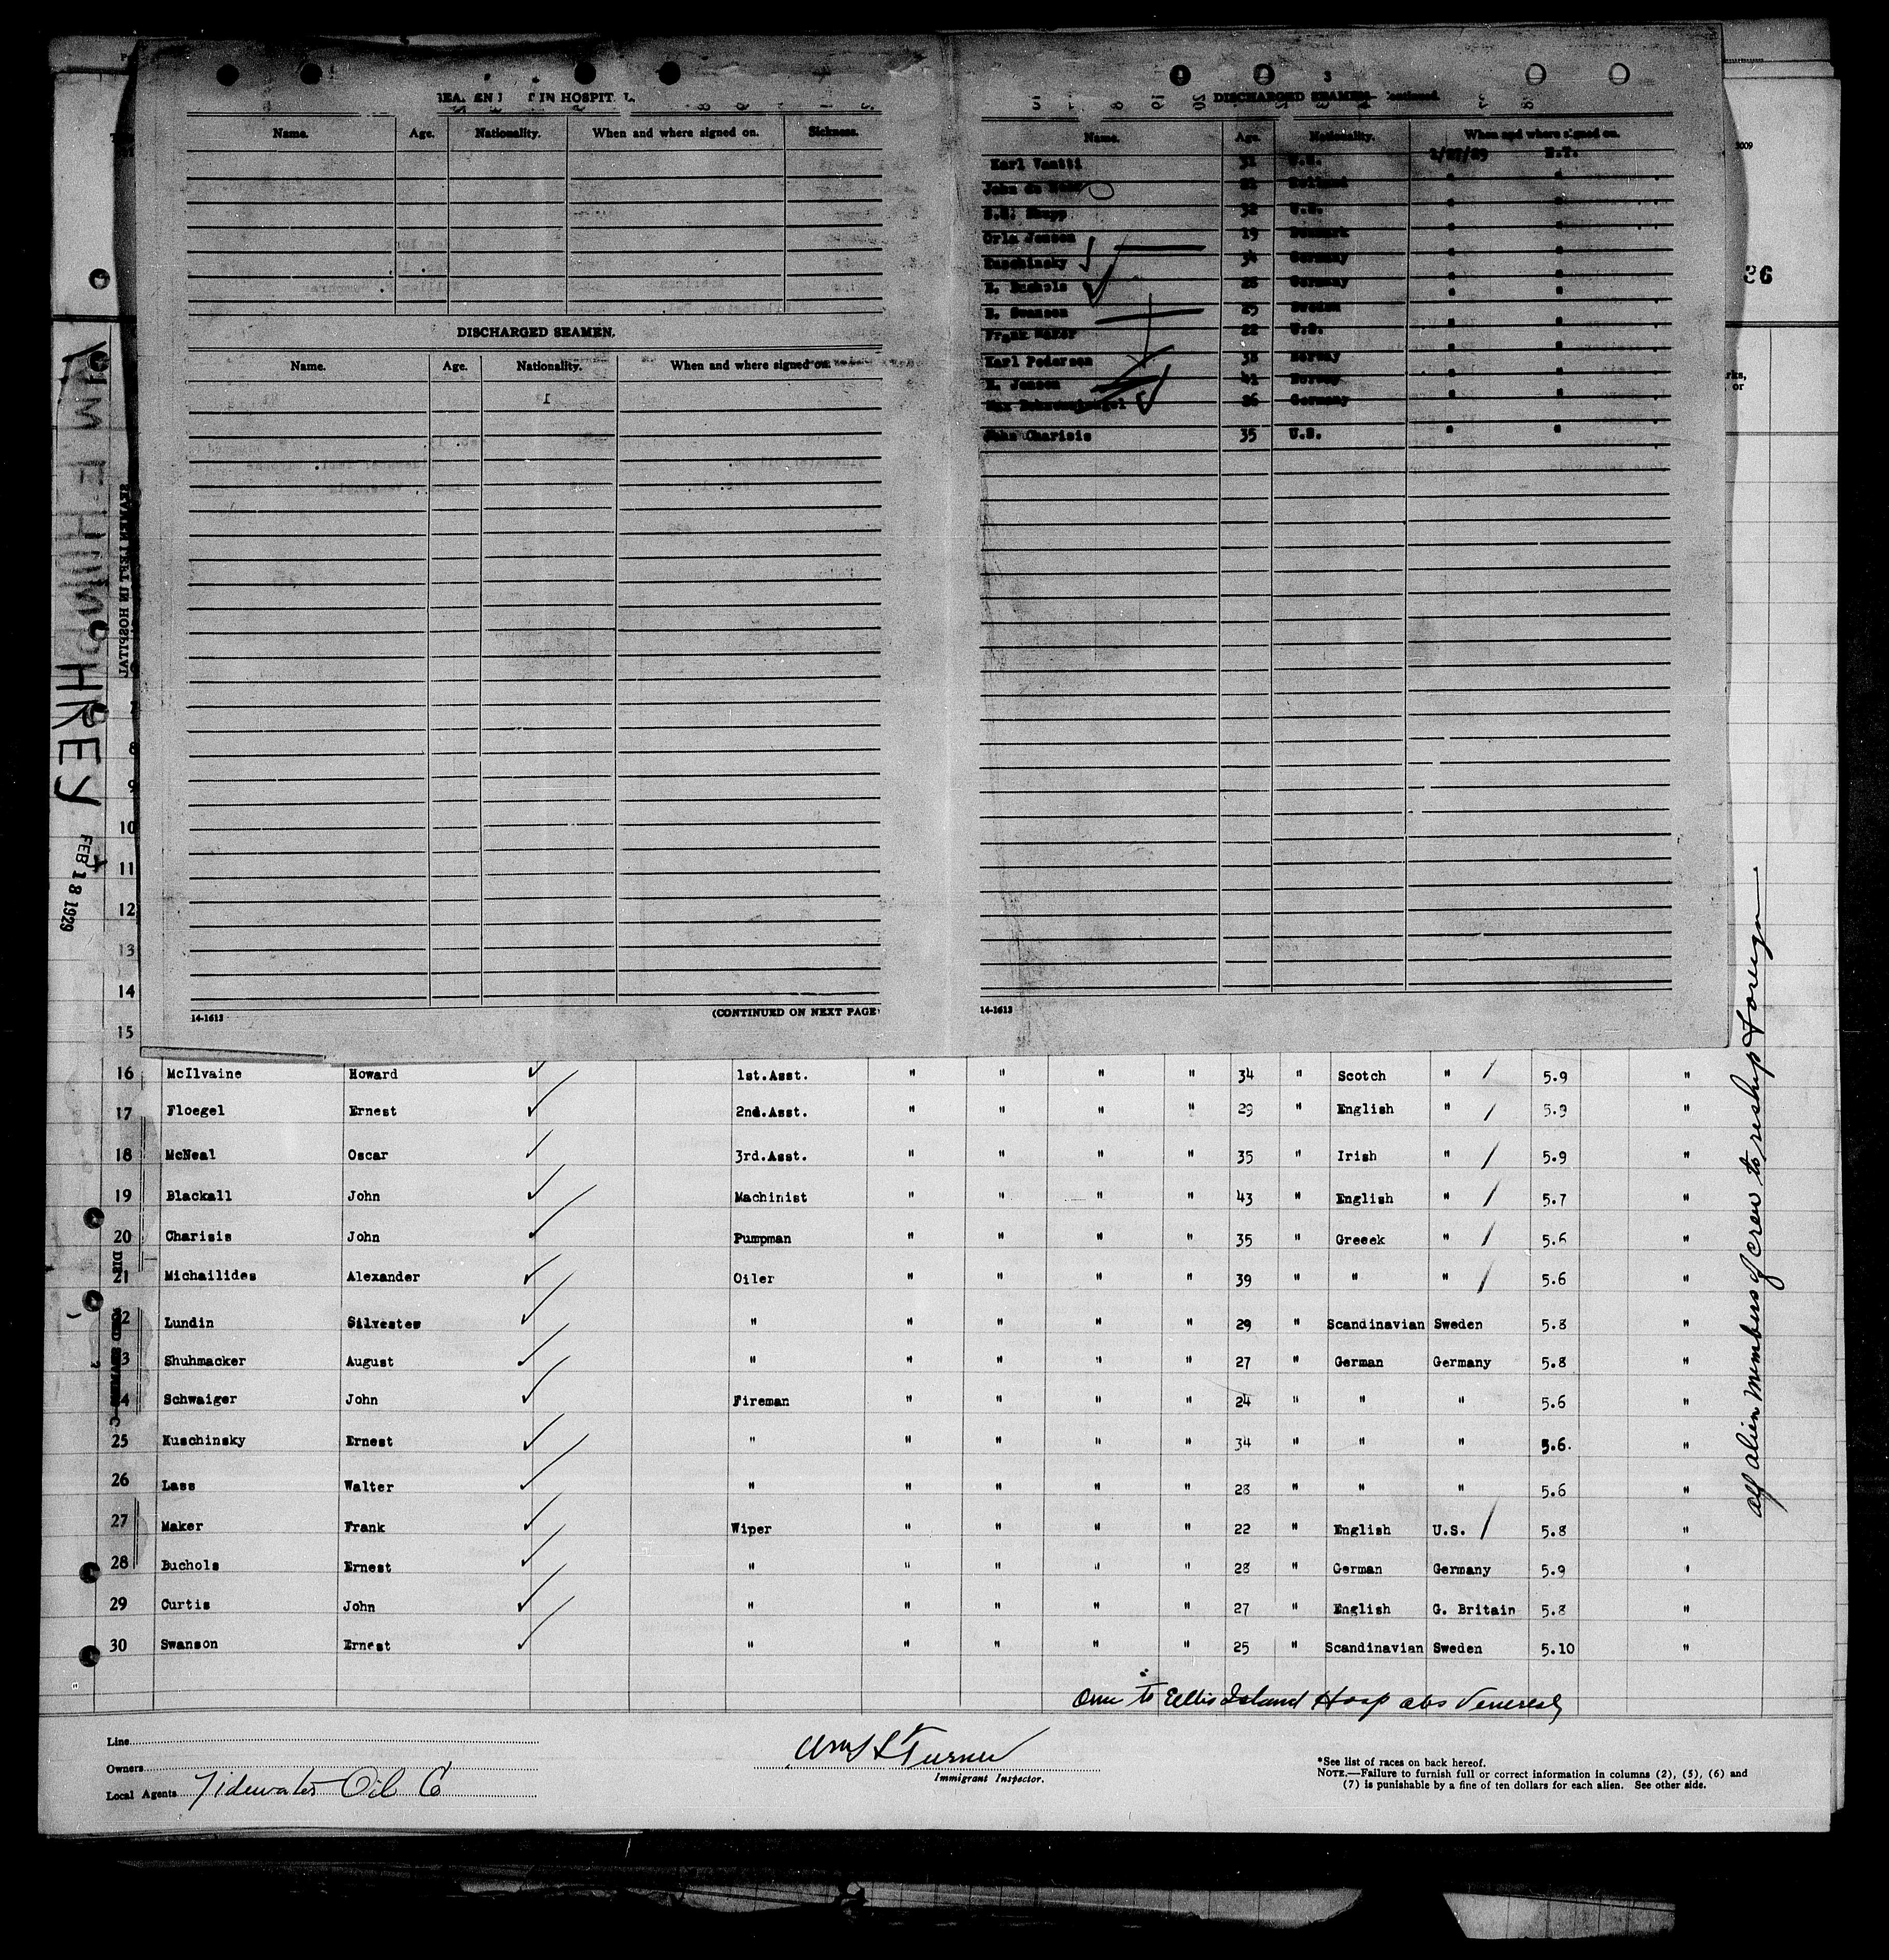 IN HOSPIT
Name. Age. Nationality. When and where signed on. Sickness.
DISCHARGED SEAMEN.
Name. Age. Nationality. When and where signed on.
(CONTINUED ON NEXT PAGE
14-1613
3
DISCHARGED SEAMEN
Name. Age. Nationality. When and where signed on.
Karl 31 U.S.
John de
32 U.S.
Orla Jensen 19 Denmark " "
Kuschinsky 34 Germany " "
E. Buchols 28 Germany " "
E. Swanson 25 Sweden " "
Frank Maker 22 U.S. " "
Karl Pedersen 38 Norway " "
H. Jensen 41 Norway " "
Max 26 Germany " "
John Charisis 35 U.S. " "
14-1613
HREY
FEB 18 1929
SEAMEN LEFT IN HOSPITAL
8
9
10
11
12
13
14
15
16 McIlvaine Howard 1st.Asst. " " " " 34 " Scotch " 5.9 "
17 Floegel Ernest 2nd.Asst. " " " " 29 " English " 5.9 "
18 McNeal Oscar 3rd.Asst. " " " " 35 " Irish " 5.9 "
19 Blackall John Machinist " " " " 43 " English " 5.7 "
20 Charisis John Pumpman " " " " 35 " Greeek " 5.6 "
21 Michailides Alexander Oiler " " " " 39 " " " 5.6 "
2 Lundin Silvester " " " " " 29 " Scandinavian Sweden 5.8 "
3 Shuhmacker August " " " " " 27 " German Germany 5.8 "
4 Schwaiger John Fireman " " " " 24 " " " 5.6 "
25 Kuschinsky Ernest " " " " " 34 " " " 5.6. "
26 Lass Walter " " " " " 28 " " " 5.6 "
27 Maker Frank Wiper " " " " 22 " English U.S. 5.8 "
28 Buchols Ernest " " " " " 28 " German Germany 5.9 "
29 Curtis John " " " " " 27 " English G. Britain 5.8 "
30 Swanson Ernest " " " " " 25 " Scandinavian Sweden 5.10 "
All alien members of crew to reship foreign
One to Ellis Island Hosp obs Venereal
Line
Owners
Local Agents Tidewater Oil Co
Turner
Immigrant Inspector.
*See list of races on back hereof.
NOTE.—Failure to furnish full or correct information in columns (2), (5), (6) and
(7) is punishable by a fine of ten dollars for each alien. See other side.